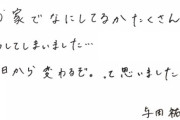 家でなにしてるかたくさん
してしまいました…
日から変わるぞ。って思いました
与田祐